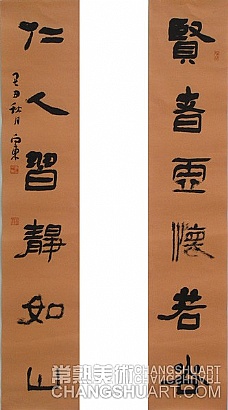 賢者虛懷若谷
仁人習靜如山
丑秋月
常熟美術 CHANGSHUART
CHANGSHUART.COM